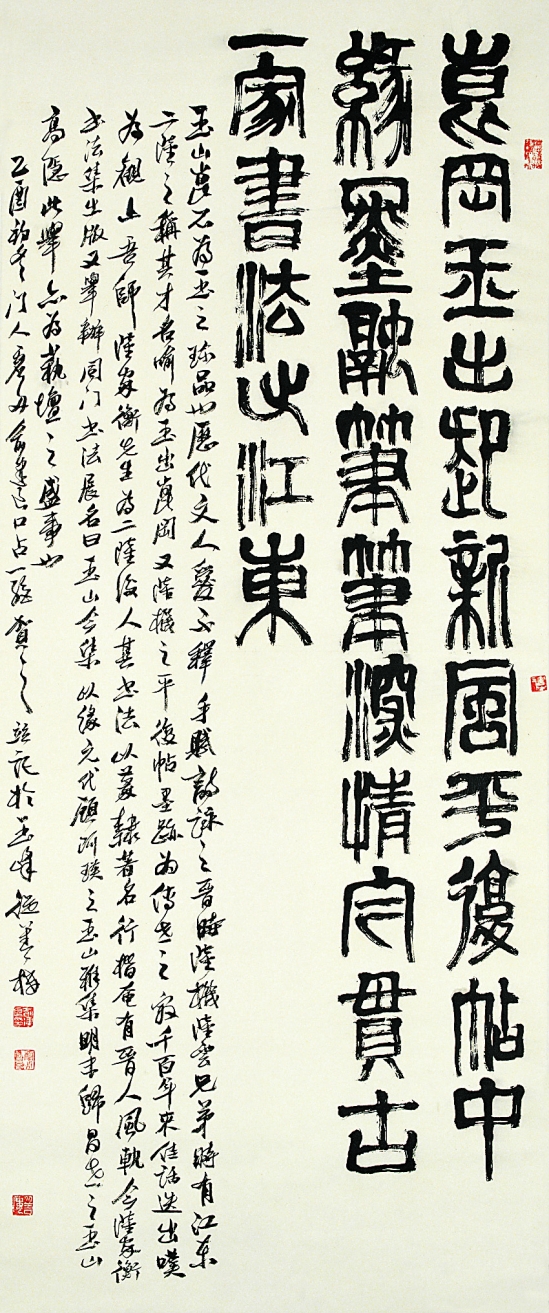 崑岡玉出起新風平復帖中
緣墨融筆筆深情守貫古
一家書法出江東
玉山崑石為玉之珍品也歷代文人愛不釋手賦詩詠之晉時陸機陸雲兄弟時有江東
二陸之稱其才者喻為玉出崑岡又陸機之平復帖墨跡為傳世之最千百年來佳話迭出嘆
為觀止吾師陸家衡先生為二陸後人其書法以篆隸著名行楷直有晉人風軌今陸家衡
書法集出版又舉辦同門書法展名曰玉山合集以緣元代顧阿瑛之玉山雅集明末歸昌世之玉山
高隱此舉亦為藝壇之盛事也
乙酉 門人 口占一絕賀之 並記於玉峰